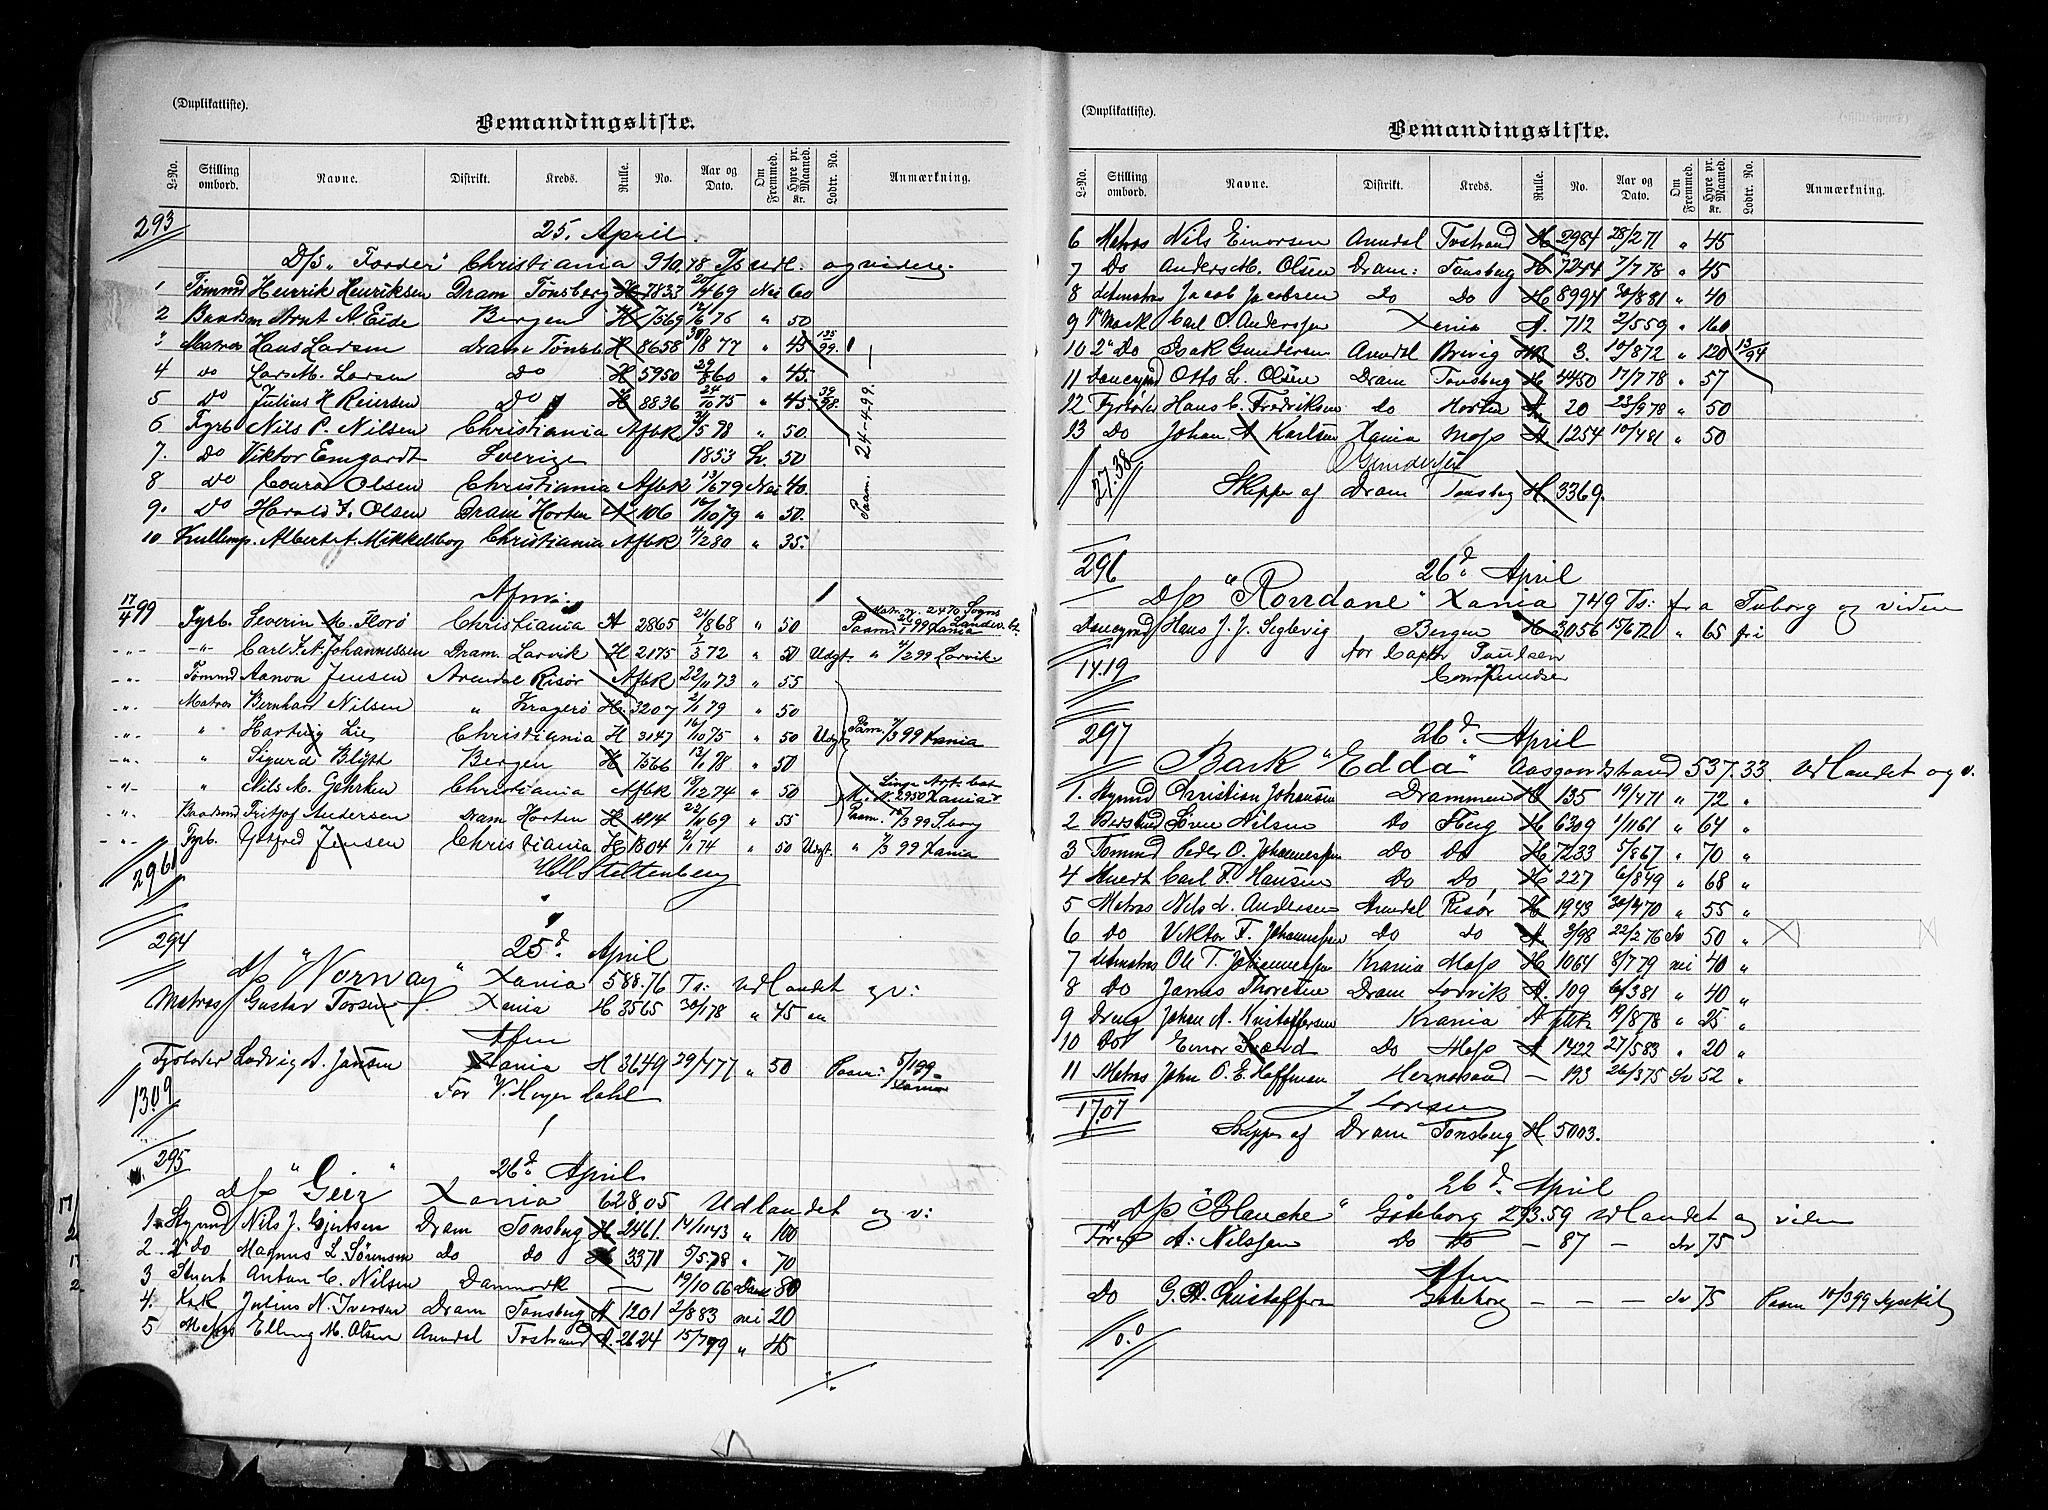 (Duplikatliste).
Bemandingsliste.
L-No. Stilling ombord. Navne. Distrikt. Kreds. Rulle. No. Aar og Dato. Om Fremmed. Hyre pr. Maaned. Kr. Lodtr. No. Anmærkning.
293 25. April.
D/S "Fander" Christiania 910,78 Ts udl. og videre.
1 Tømmd Henrik Henriksen Dram Tønsberg H 7833 20/4 69 Nei 60
2 Baadsm Arnt A. Eide Bergen H 7369 12/6 76 " 50
" Matros Hans Larsen Dram Tønsb H 8658 30/8 77 " 45 135/99.
4 do Lars M. Larsen Do H 5950 29/8 60 " 45.
5 Do Julius H Reiersen Do H 8836 24/10 75 " 45 39/98.
6 Fyrb Nils P. Nilsen Christiania Afbk 24/5 78 " 50.
7. Do Viktor Emgardt Sverige 1853 Sv. 50
8 Do Conrad Olsen Christiania Afbk 13/6 79 Nei 40.
9. Do Harald F. Olsen Dram Horten A 106 16/10 79 " 50.
10 Kullemp. Albert A. Mikkelsborg Christiania Afbk 4/2 80 " 35.
Paam. 24-4-99.
Afm:
17/4 99 Fyrb. Severin M. Florö Christiania A 2865 21/8 68 " 50 Paam. 99 Xania
-"- -"- Carl F. A. Johannessen Dram. Larvik H 2175 7/3 72 " 50 Udgt. " 7/2 99 Larvik
-"- Tømmd Aanon Jensen Arendal Risör Afbk 22/11 73 " 55
-"- Matros Bernhard Nilsen " Kragerö H. 3207 2/11 79 " 50
-"- " Hartvig Lie Christiania H 2147 16/10 75 " 50 Udgt Paam 7/3 99 Xania
-"- " Sigurd Blytt Bergen H 7566 13/1 78 " 50
-"- " Nils M. Gehrken Christiania Afbk 18/12 74 " 50 M. N. 2950 Xania
-"- Baadsmd Fritjof Andersen Dram Horten H 1914 22/11 69 " 55 Paam. 14/3 99 Sborg
-"- Fyrb. Gotfred Jensen Christiania H 1804 2/1 74 " 50 Udgt. " 7/3 99 Xania
2960 Stoltenberg
294 25d April
D/S "Norway" Xania 588.76 Ts: Udlandet og v:
Matros Gustav Torsen Xania H 3565 30/1 78 " 45
Afm
Fyrböder Ludvig A. Jansen Xania H 3649 29/4 77 " 50 Paam: 5/1 99 Xania
1309 For V. Høyer Dahl
295 26d April
D/S "Geir" Xania 628.05 Udlandet og v:
1 Styrmd Nils J. Gjertsen Dram Tonsbug H 2461. 14/11 43 " 100
2. 2d Do Magnus L Sørensen Do do H 3371 5/5 78 " 70
3 Stuert Anton C. Nilsen Danmark — 19/10 66 Dansk 80
4. Kok Julius N. Iversen Dram Tonsbug A 1201 2/8 83 nei 20
5 Matros Elling M. Olsen Arendal Tvestrand A. 2624 15/7 79 " 45
./.
(Duplikatliste).
Bemandingsliste.
L-No. Stilling ombord. Navne. Distrikt. Kreds. Rulle. No. Aar og Dato. Om Fremmed. Hyre pr. Maaned. Kr. Lodtr. No. Anmærkning.
6 Matros Nils Einorsen Arendal Tvstrand H 2984 28/2 71 " 45
7 Do Anders M. Olsen Dram: Tonsberg H 7244 7/7 78 " 45
8 Letmatros Jacob Jacobsen Do Do H 8994 30/8 81 " 40
9 1ste Mask Carl O. Anderssen Xania A. 712 2/5 59 " 160
10 2d Do Isak Gundersen Arendal Brevig MB 3. 10/8 72 " 120 13/94
11 Donkeymd Otto L. Olsen Dram Tonsbug H 4450 17/7 78 " 57
12 Fyrböder Hans C. Fredriksen Do Horten A. 20 23/9 78 " 50
13 Do Johan A Karlsen Xania Moss A 1254 10/4 81 " 50
27.38 O Gundersen
Skipper af Dram Tonsbug H 3369.
296 26d April
D/S "Rondane" Xania 749 Ts: fra Tuborg og viden
Donkeymd Hans J. J. Seglevig Bergen H 3056 15/6 72 " 65 fri
14.19 for Captn Paulsen
Conr Knudsen
297 26d April
Bark "Edda" Aasgaardstrand 537.33. Udlandet og v.
1. Styrmd Christian Johansen Drammen H 135 19/4 71 " 72 "
2 Bestmd Sven Nilsen Do Tberg H 6309 1/11 61 " 64 "
3 Tommd Peder O. Johannessen Do Do H 7233 5/8 67 " 70 "
4 Stuert Carl F. Hansen Do Do H 227 6/8 49 " 68 "
5 Matros Nils L. Andersen Arendal Risör H 1943 30/4 70 " 55 "
6 Do Viktor F. Johannessen Do do A. 3/98 22/2 76 Sv 50 "
7 Letmatros Ole T. Johannessen Xrania Moss H 1064 8/7 79 nei 40 "
8 Do James Thoresen Dram Larvik A. 109 6/3 81 " 40 "
9 Dreng Johan A. Kristoffersen Krania Afbk 19/8 78 " 25 "
10 Do Einor Sværd Do Moss A 1422 27/5 83 " 20 "
11 Matros John O. E. Hoffman Hernøsand — 193 26/3 75 Sv 52 "
17.07 J Larsen
Skipper af Dram Tonsbug H 5003.
26d April
D/S "Blanche" Göteborg 293.59 Udlandet og viden
Förer A: Nilssen Do Do — 87 — Sv 75
Afm
Do G. A. Gustafsson Göteborg — — — Sv 75 Paam 10/3 99 Lysekil
0.0